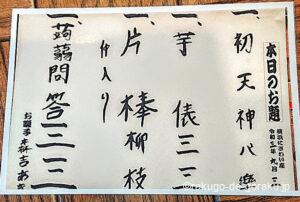 本日のお題
横浜にぎわい座
令和三年 九月
一、初天神 八楽
一、芋俵 三三
一、片棒 柳枝
仲入り
一、蒟蒻問答 三三
お囃子
rakugo-de-go.raku.jp